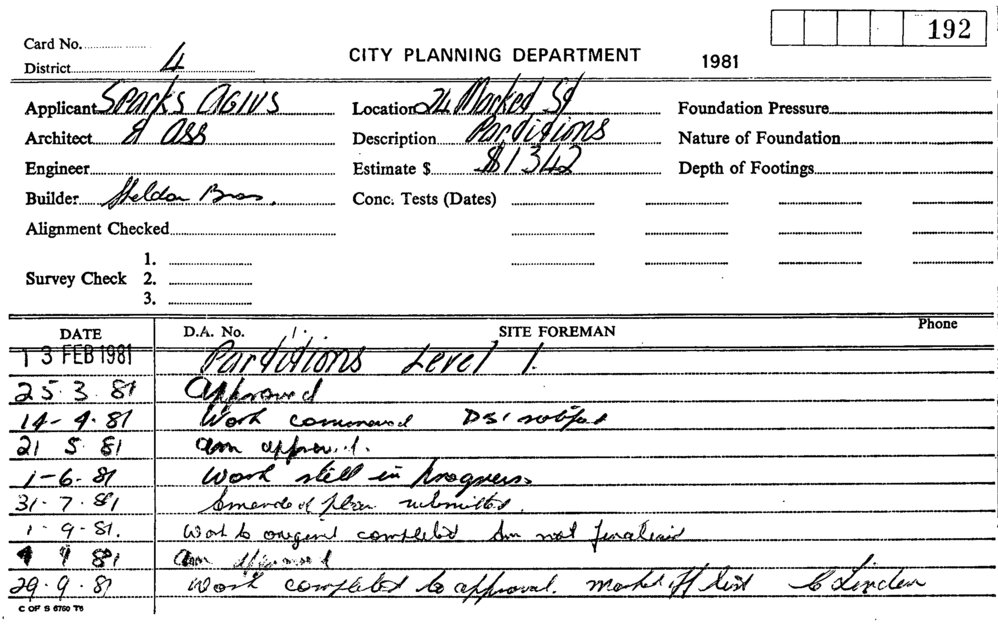 192
Card No.
District 4
CITY PLANNING DEPARTMENT 1981
Applicant Sparks Agius Location 24 Market St Foundation Pressure
Architect & Ass Description Partitions Nature of Foundation
Engineer Estimate $ $1342 Depth of Footings
Builder Sheldon Bros. Conc. Tests (Dates)
Alignment Checked
1.
Survey Check 2.
3.
DATE D.A. No. SITE FOREMAN Phone
13 FEB 1981 Partitions Level 1.
25.3.81 Approved
14-4.81 Work commenced
21 5 81 am approved.
1-6.81 Work still in progress.
31.7.81 Amended plan submitted.
1.9.81. Work to completed Am not
9 81 am approved
29.9.81 Work completed to approval. Market off list C Linden
C OF S 6750 T6